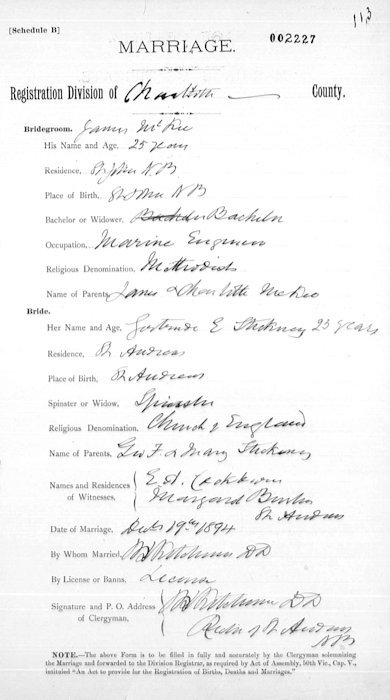 113
[Schedule B]
002227
MARRIAGE.
Registration Division of Charlotte County.
Bridegroom. James McKee
His Name and Age, 25 years
Residence, St John N B
Place of Birth, St John N B
Bachelor or Widower, Bachelor
Occupation, Marine Engineer
Religious Denomination, Methodist
Name of Parents, James & Charlotte McKee
Bride.
Her Name and Age, Gertrude E Stickney 23 years
Residence, St Andrews
Place of Birth, St Andrews
Spinster or Widow, Spinster
Religious Denomination, Church of England
Name of Parents, Geo F. & Mary Stickney
Names and Residences of Witnesses, E A. Cockburn
Margaret Burton
St Andrews
Date of Marriage, 19th 1894
By Whom Married, Ketchum DD
By License or Banns, License
Signature and P. O. Address of Clergyman, Ketchum DD
Rector of St Andrews
N B
NOTE.—The above Form is to be filled in fully and accurately by the Clergyman solemnizing
the Marriage and forwarded to the Division Registrar, as required by Act of Assembly, 50th Vic., Cap. V.,
intituled "An Act to provide for the Registration of Births, Deaths and Marriages."